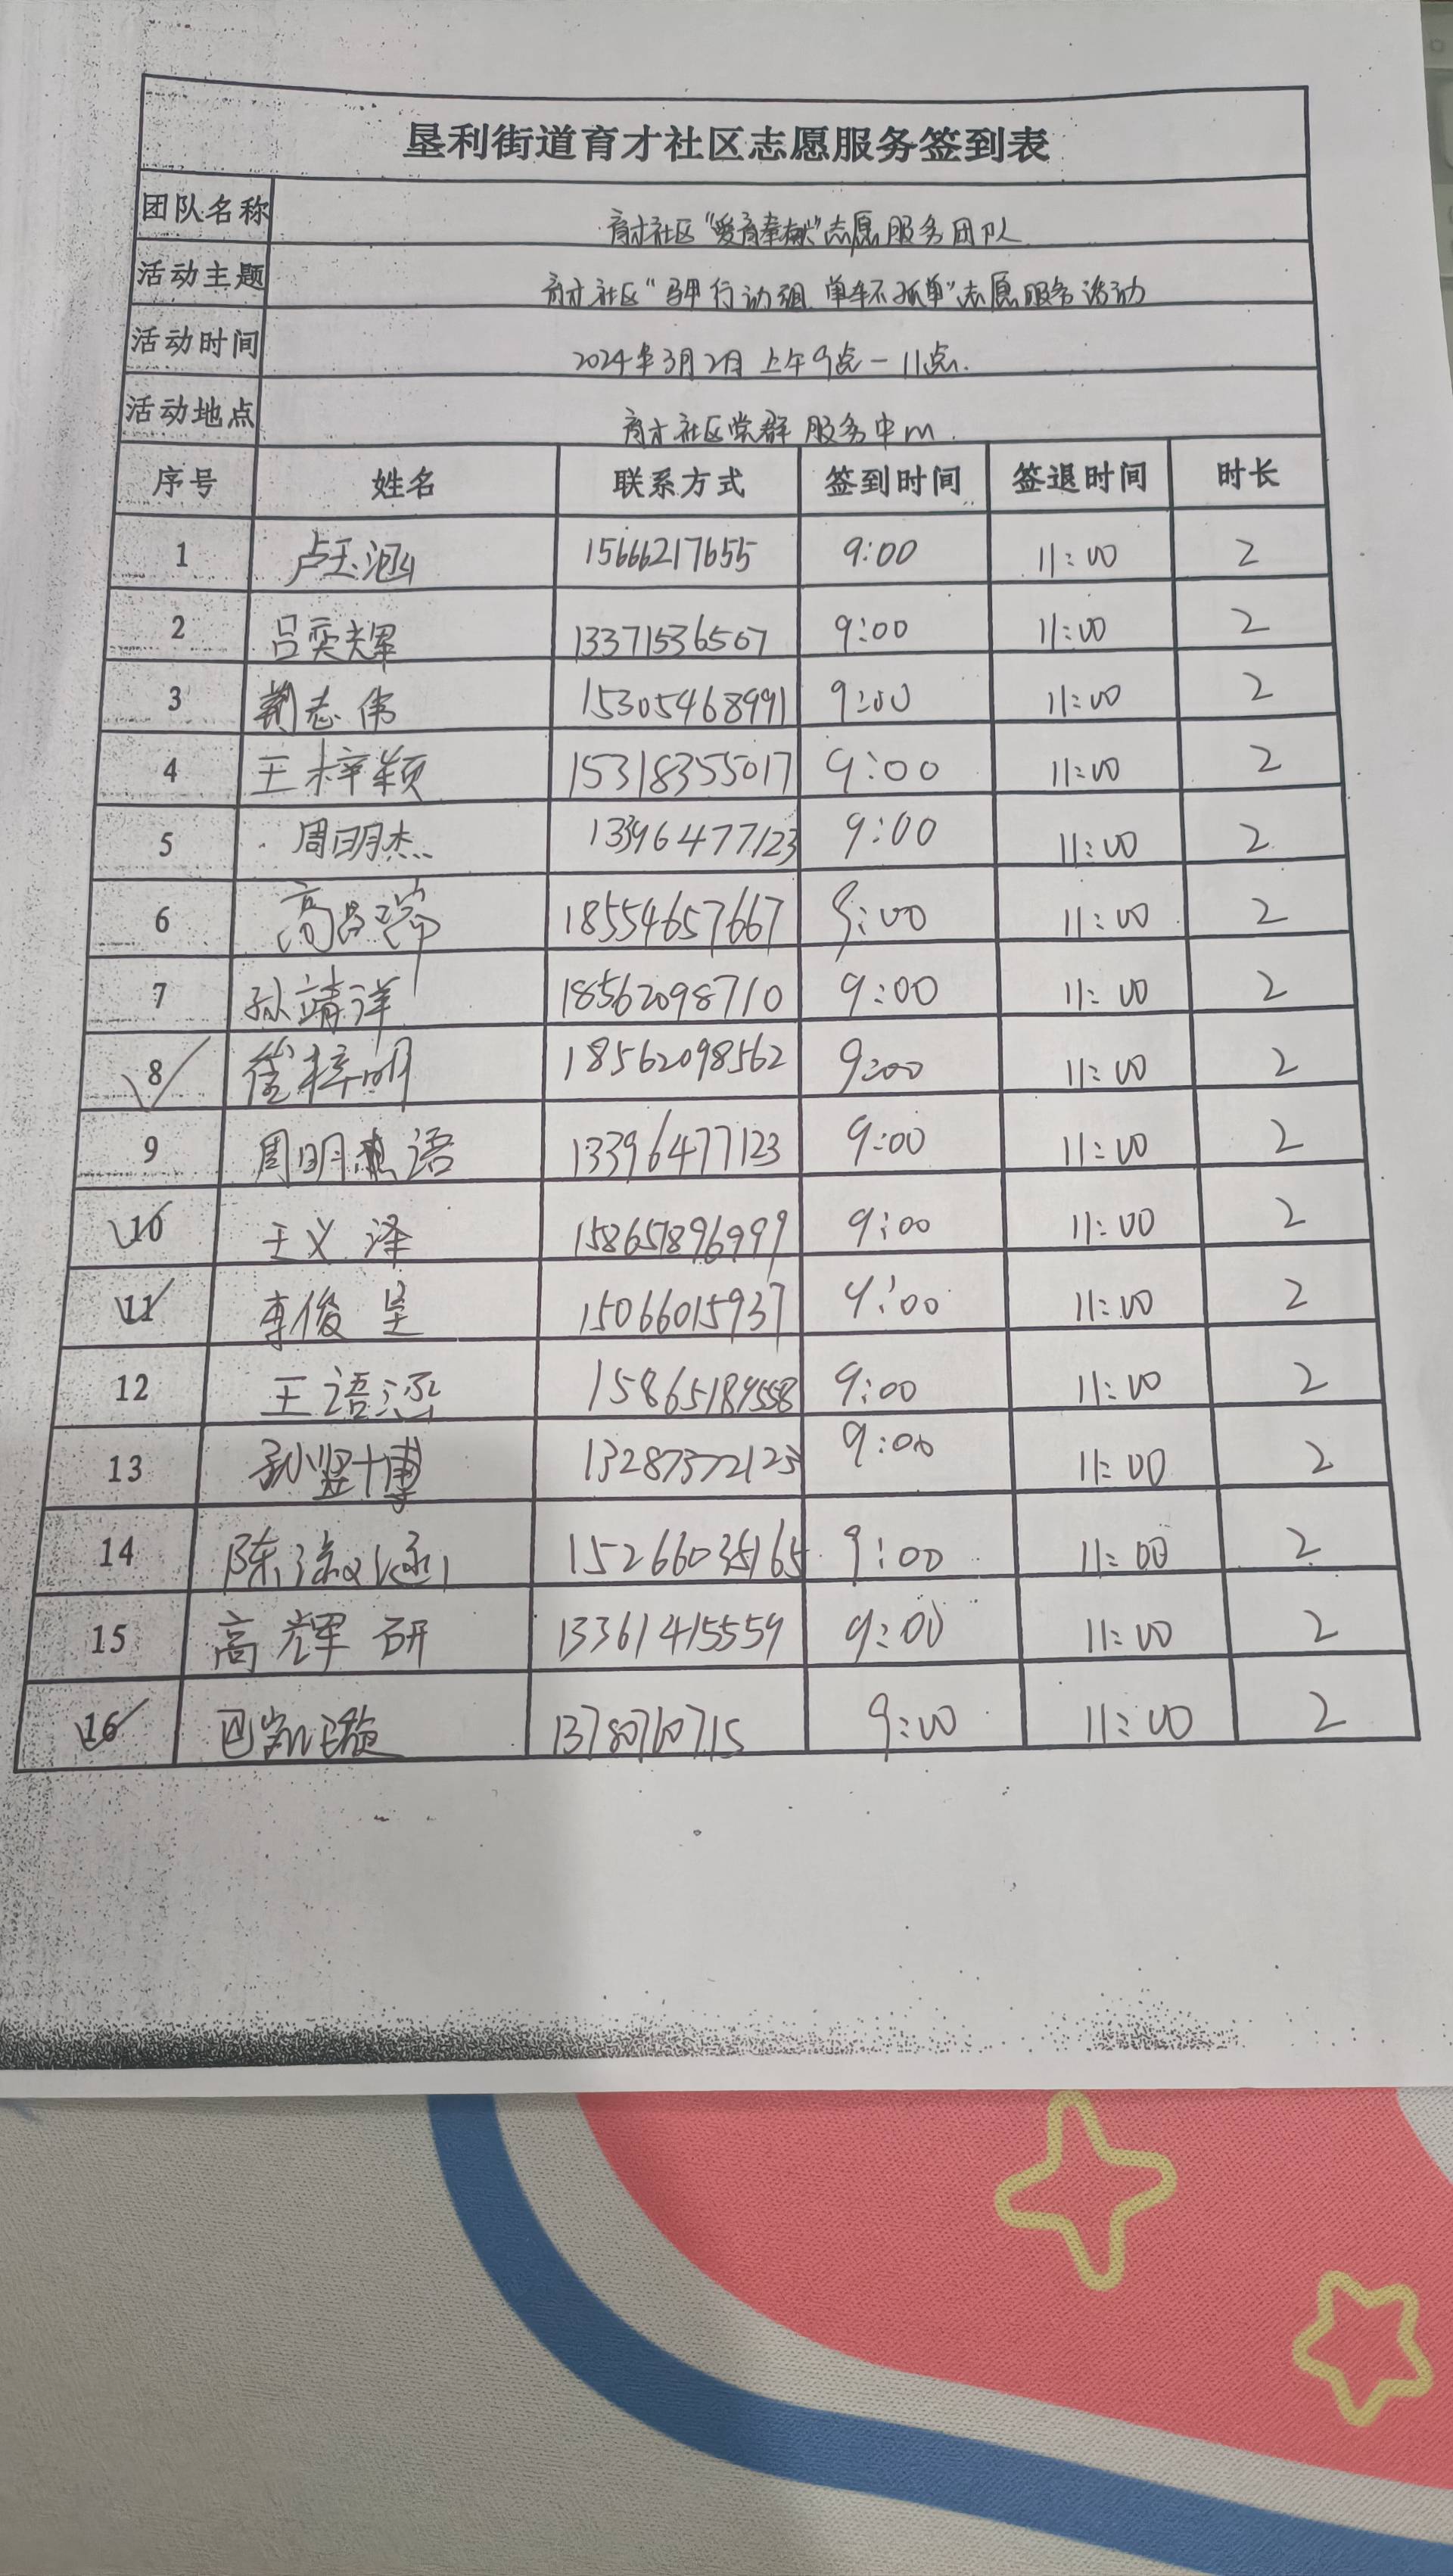 垦利街道育才社区志愿服务签到表
团队名称 育才社区“爱育奉献”志愿服务团队
活动主题 育才社区“马甲行动组 单车不孤单”志愿服务活动
活动时间 2024年3月2日 上午9点-11点.
活动地点 育才社区党群服务中心
序号 姓名 联系方式 签到时间 签退时间 时长
1 卢玉涵 15666217655 9:00 11:00 2
2 吕奕辉 13371536507 9:00 11:00 2
3 荆志伟 15305468991 9:00 11:00 2
4 王梓颖 15318355017 9:00 11:00 2
5 周明杰 13396477123 9:00 11:00 2
6 高昌瑞 18554657667 9:00 11:00 2
7 孙靖洋 18562098710 9:00 11:00 2
8 梓明 18562098562 9:00 11:00 2
9 周明语 13396477123 9:00 11:00 2
10 王义泽 9:00 11:00 2
11 李俊呈 15066015937 9:00 11:00 2
12 王语涵 9:00 11:00 2
13 孙竖博 9:00 11:00 2
14 陈涵 9:00 11:00 2
15 高辉研 13361415559 9:00 11:00 2
16 巴凯璇 13780760715 9:00 11:00 2